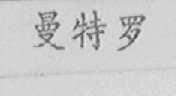 曼特罗